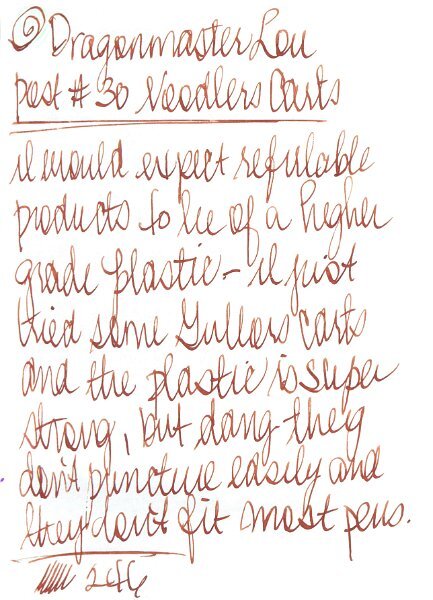 @DragonmasterLou
post # 30 Noodlers Carts
I would expect refillable
products to be of a higher
grade plastic - I just
tried some Gullors carts
and the plastic is super
strong, but dang they
don't puncture easily and
they don't fit most pens.